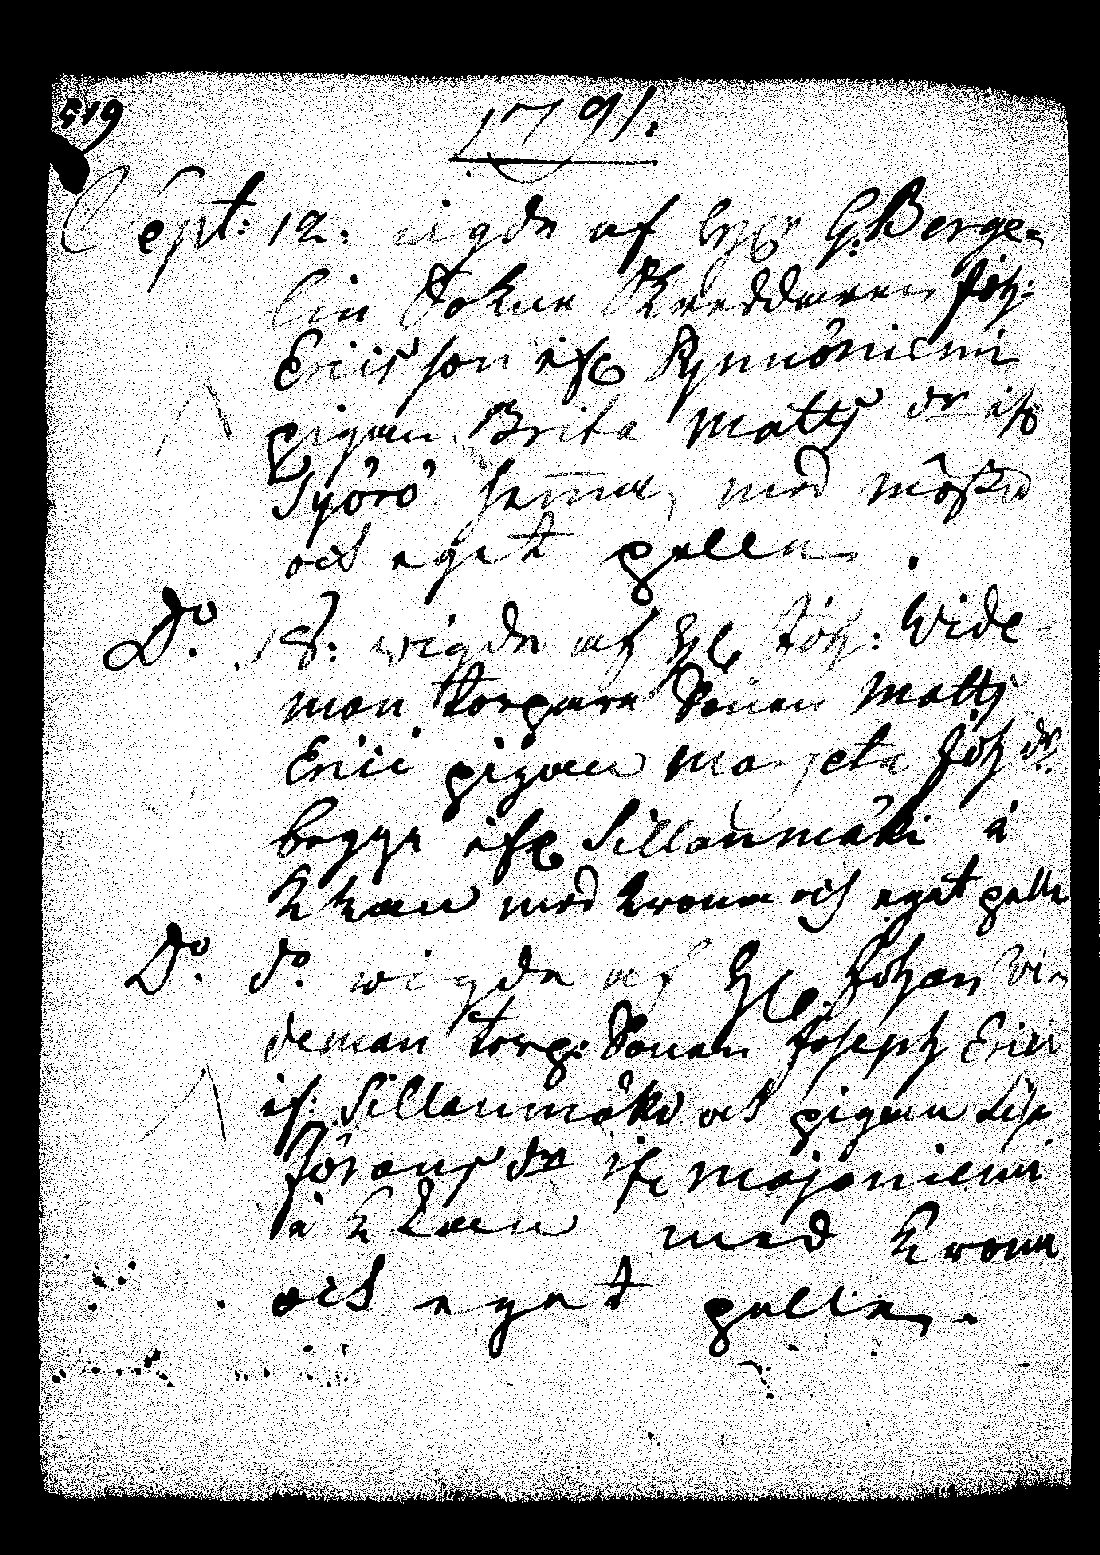 519
1791.
Sept: 12. wigde af G. Berge-
lin Sokne Skreddaren Joh:
Ericsson ifr Rynnöniemi
pigan Brita Matts dr ifr
Syörö hemma, med mössa
och eget pelle.
Do 18. wigde af H Joh: Wide-
man torpare Sonen Matts
Erici pigan Margeta Joh dr
begge ifr Sillanmäki å
K kan med krona och eget pelle
Do do wigde af H Johan Wi-
deman torp: Sonen Joseph Erici
if: Sillanmäki och pigan Lisa
Jörans dr ifr Majoniemi
å K kan med Krona
och eget pelle.